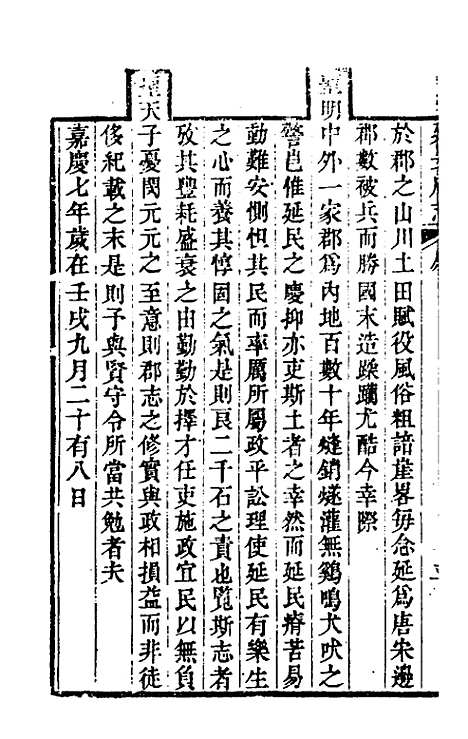 於郡之山川土田賦役風俗粗諳崖畧每念延爲唐宋邊
郡數被兵而勝國末造蹂躪尤酷今幸際
聖明中外一家郡爲內地百數十年烽銷燧灌無鷄鳴犬吠之
警豈惟延民之慶抑亦吏斯土者之幸然而延民瘠苦易
動難安惻怛其民而率厲所屬政平訟理使延民有樂生
之心而養其惇固之氣是則良二千石之責也覽斯志者
攷其豐耗盛衰之由勤勤於擇才任吏施政宜民以無負
聖天子憂閔元元之至意則郡志之修實與政相損益而非徒
侈紀載之末是則予與賢守令所當共勉者夫
嘉慶七年歲在壬戌九月二十有八日